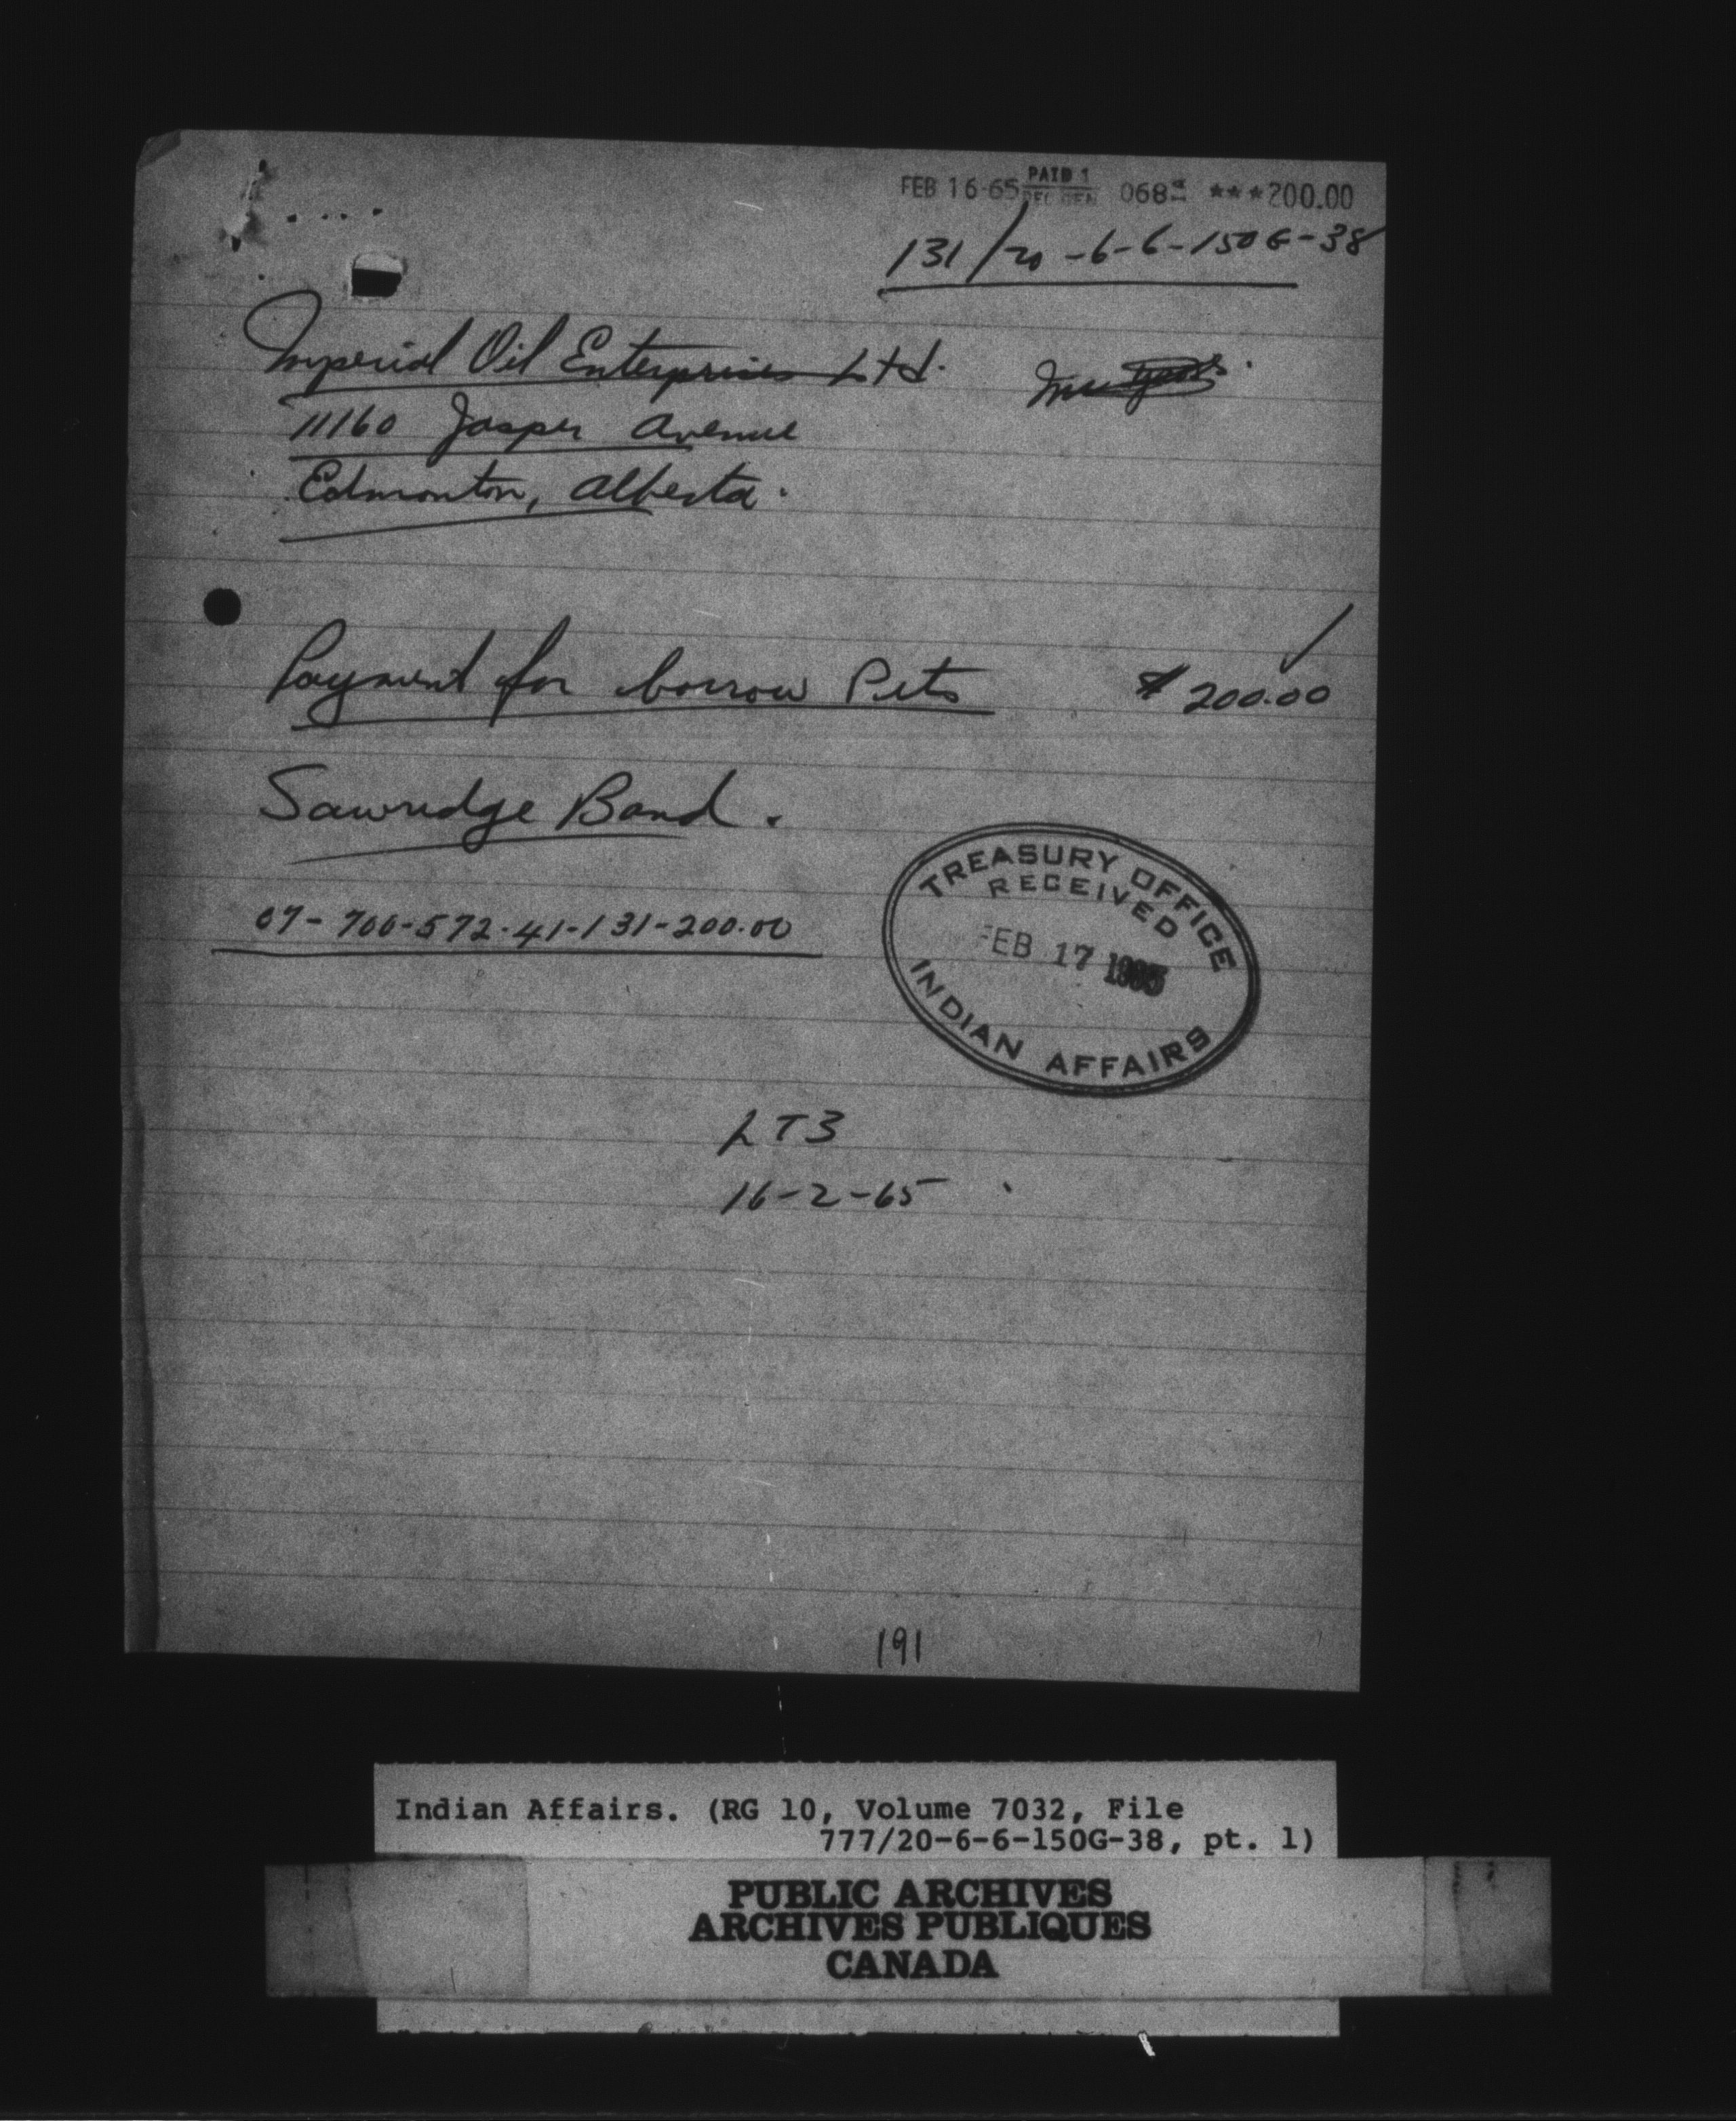 FEB 16-65 PAID 1 068 ***200.00
REC GEN
131/20-6-6-150G-38
Imperial Oil Enterprises Ltd.
11160 Jasper Avenue
Edmonton, Alberta.
Payment for borrow Pits $200.00
Sawridge Band.
07-700-572-41-131-200.00
TREASURY OFFICE
RECEIVED
FEB 17 1965
INDIAN AFFAIRS
LT3
16-2-65
191
Indian Affairs. (RG 10, Volume 7032, File
777/20-6-6-150G-38, pt. 1)
PUBLIC ARCHIVES
ARCHIVES PUBLIQUES
CANADA